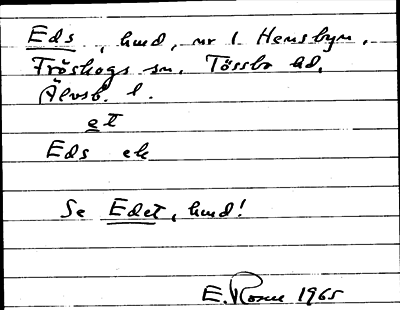 Eds, hmd, nr 1 Hensbyn,
Fröskogs sn. Tössbo hd.
Älvsb. l.
et
Eds ek
Se Edet, hmd!
E. Rosén 1965